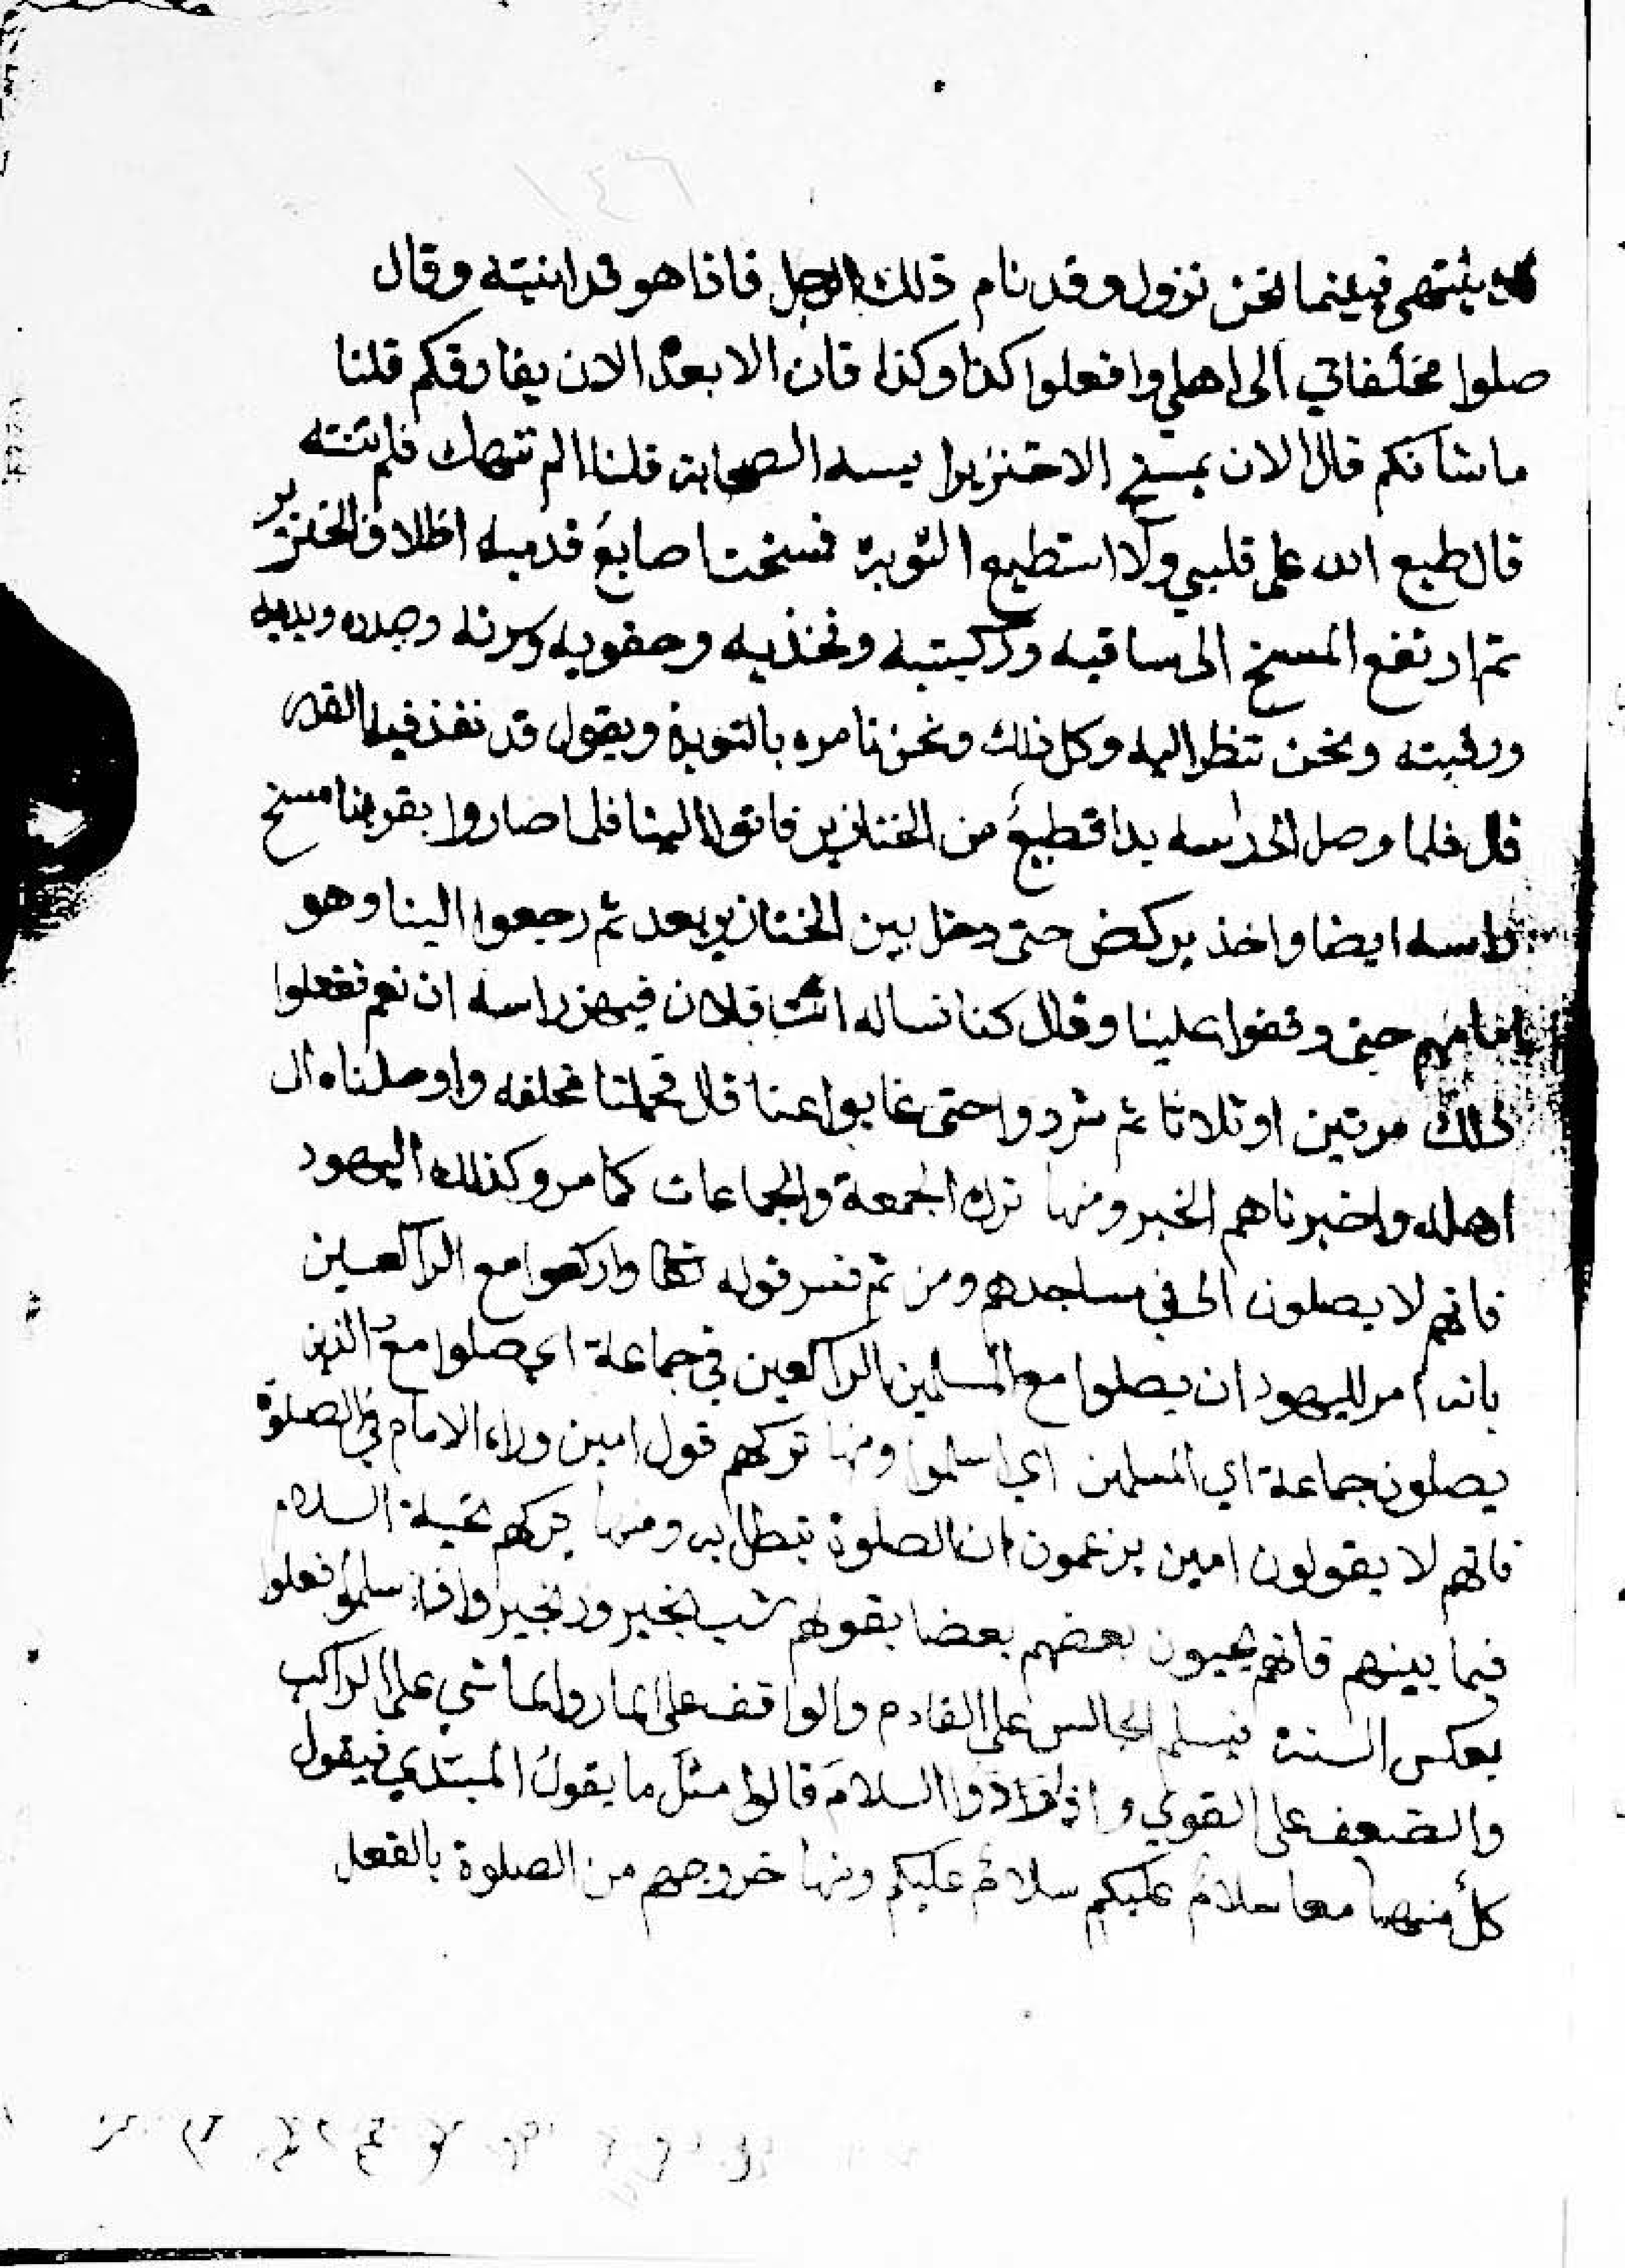 ينتهى فبينما نحن نزول وقد نام ذلك الرجل فاذا هو قد انتبه وقال
صلوا مخلفاتي الى اهلي وافعلوا كذا وكذا فان الابعد الان يفارقكم قلنا
ما شانكم قال الان يمسخ الاخنزيرا بسبه الصحابة قلنا الم ننهك فلم تنته
قال طبع الله على قلبي ولا استطيع التوبة فمسخت اصابع قدميه اظلاف الخنزير
ثم ارتفع المسخ الى ساقيه وركبتيه وفخذيه وحقويه وسرته وصدره ويديه
ورقبته ونحن ننظر اليه وكل ذلك ونحن نامره بالتوبة ويقول قد نفذ فيا القدر
قال فلما وصل الى راسه بدا قطيع من الخنازير فاتوا الينا فلما صاروا بقربنا مسخ
راسه ايضا واخذ يركض حتى دخل بين الخنازير بعد ثم رجعوا الينا وهو
امامهم حتى وقفوا علينا وقال كنا نساله انت فلان فيهز راسه ان نعم ففعلوا
ذلك مرتين او ثلاثا ثم شردوا حتى غابوا عنا قال فحملنا مخلفه واوصلناه الى
اهله واخبرناهم الخبر ومنها ترك الجمعة والجماعات كما مر وكذلك اليهود
فانهم لا يصلون الى في مساجدهم ومن ثم فسر قوله تعالى واركعوا مع الراكعين
بانه امر لليهود ان يصلوا مع المسلمين الراكعين في جماعة اي صلوا مع الذين
يصلون جماعة اي المسلمين اي اسلموا ومنها تركهم قول امين وراء الامام في الصلوة
فانهم لا يقولون امين يزعمون ان الصلوة تبطل به ومنها تركهم تحية السلام
فيما بينهم فانهم يحيون بعضهم بعضا بقولهم شب بخير وز بخير واذا سلموا فعلوا
بعكس السنة فيسلم الجالس على القادم والواقف على المار والماشي على الراكب
والضعيف على القوي واذا ردوا السلام قالوا مثل ما يقول المبتدي فيقول
كل منهما معا سلام عليكم سلام عليكم ومنها خروجهم من الصلوة بالفعل